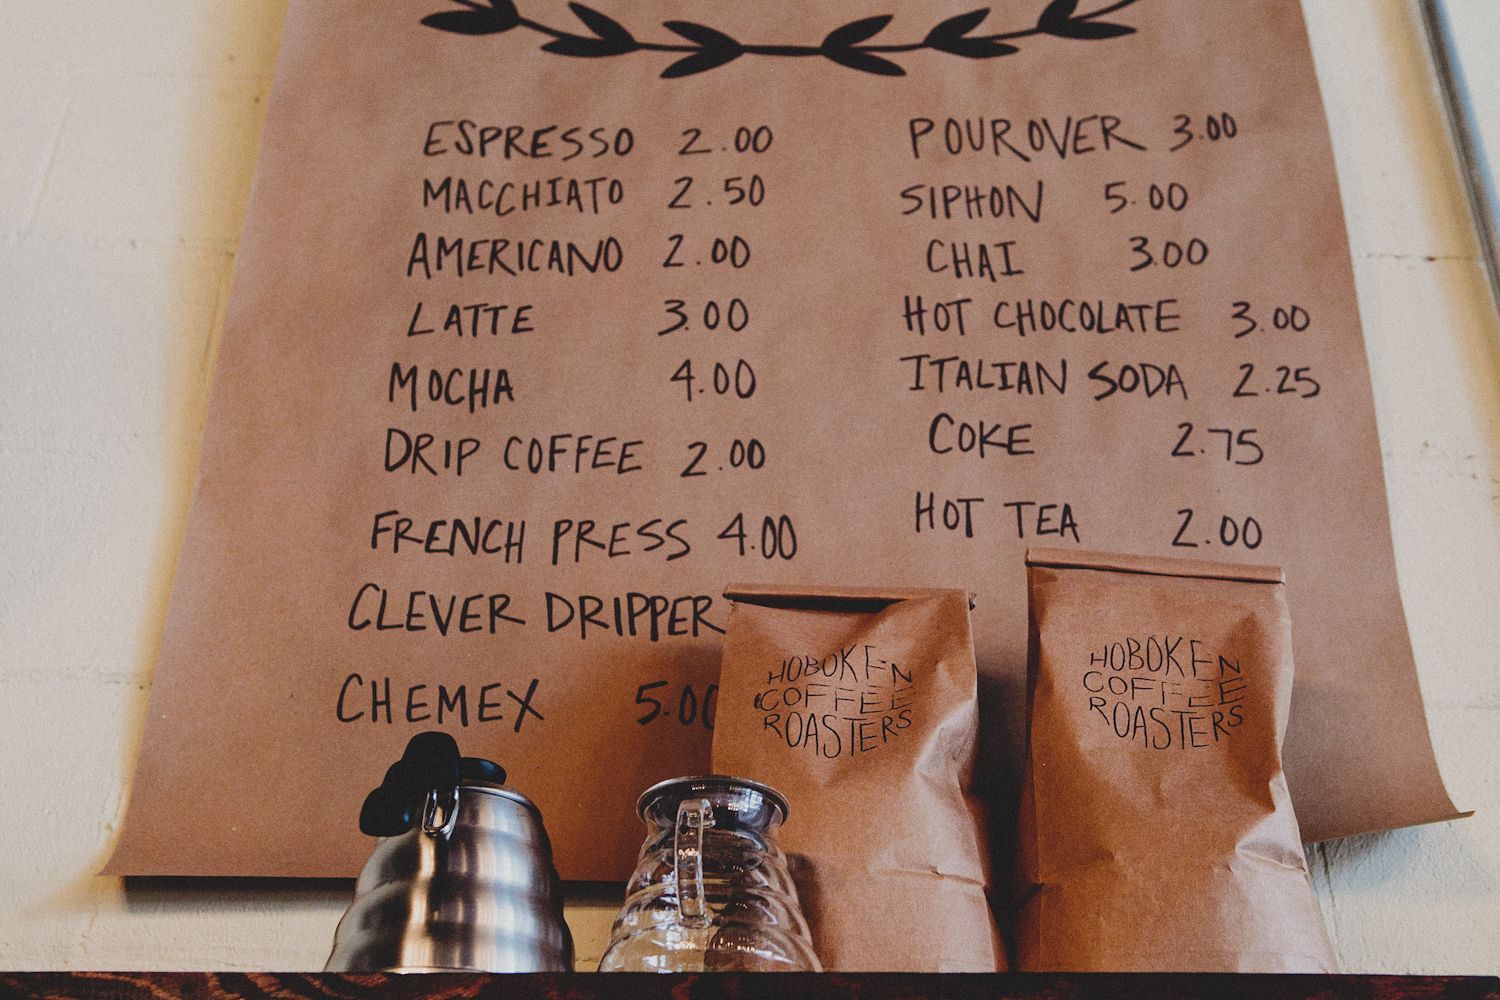 ESPRESSO 2.00
MACCHIATO 2.50
AMERICANO 2.00
LATTE 3.00
MOCHA 4.00
DRIP COFFEE 2.00
FRENCH PRESS 4.00
CLEVER DRIPPER
CHEMEX 5.00
POUROVER 3.00
SIPHON 5.00
CHAI 3.00
HOT CHOCOLATE 3.00
ITALIAN SODA 2.25
COKE 2.75
HOT TEA 2.00
HOBOKEN
COFFEE
ROASTERS
HOBOKEN
COFFEE
ROASTERS